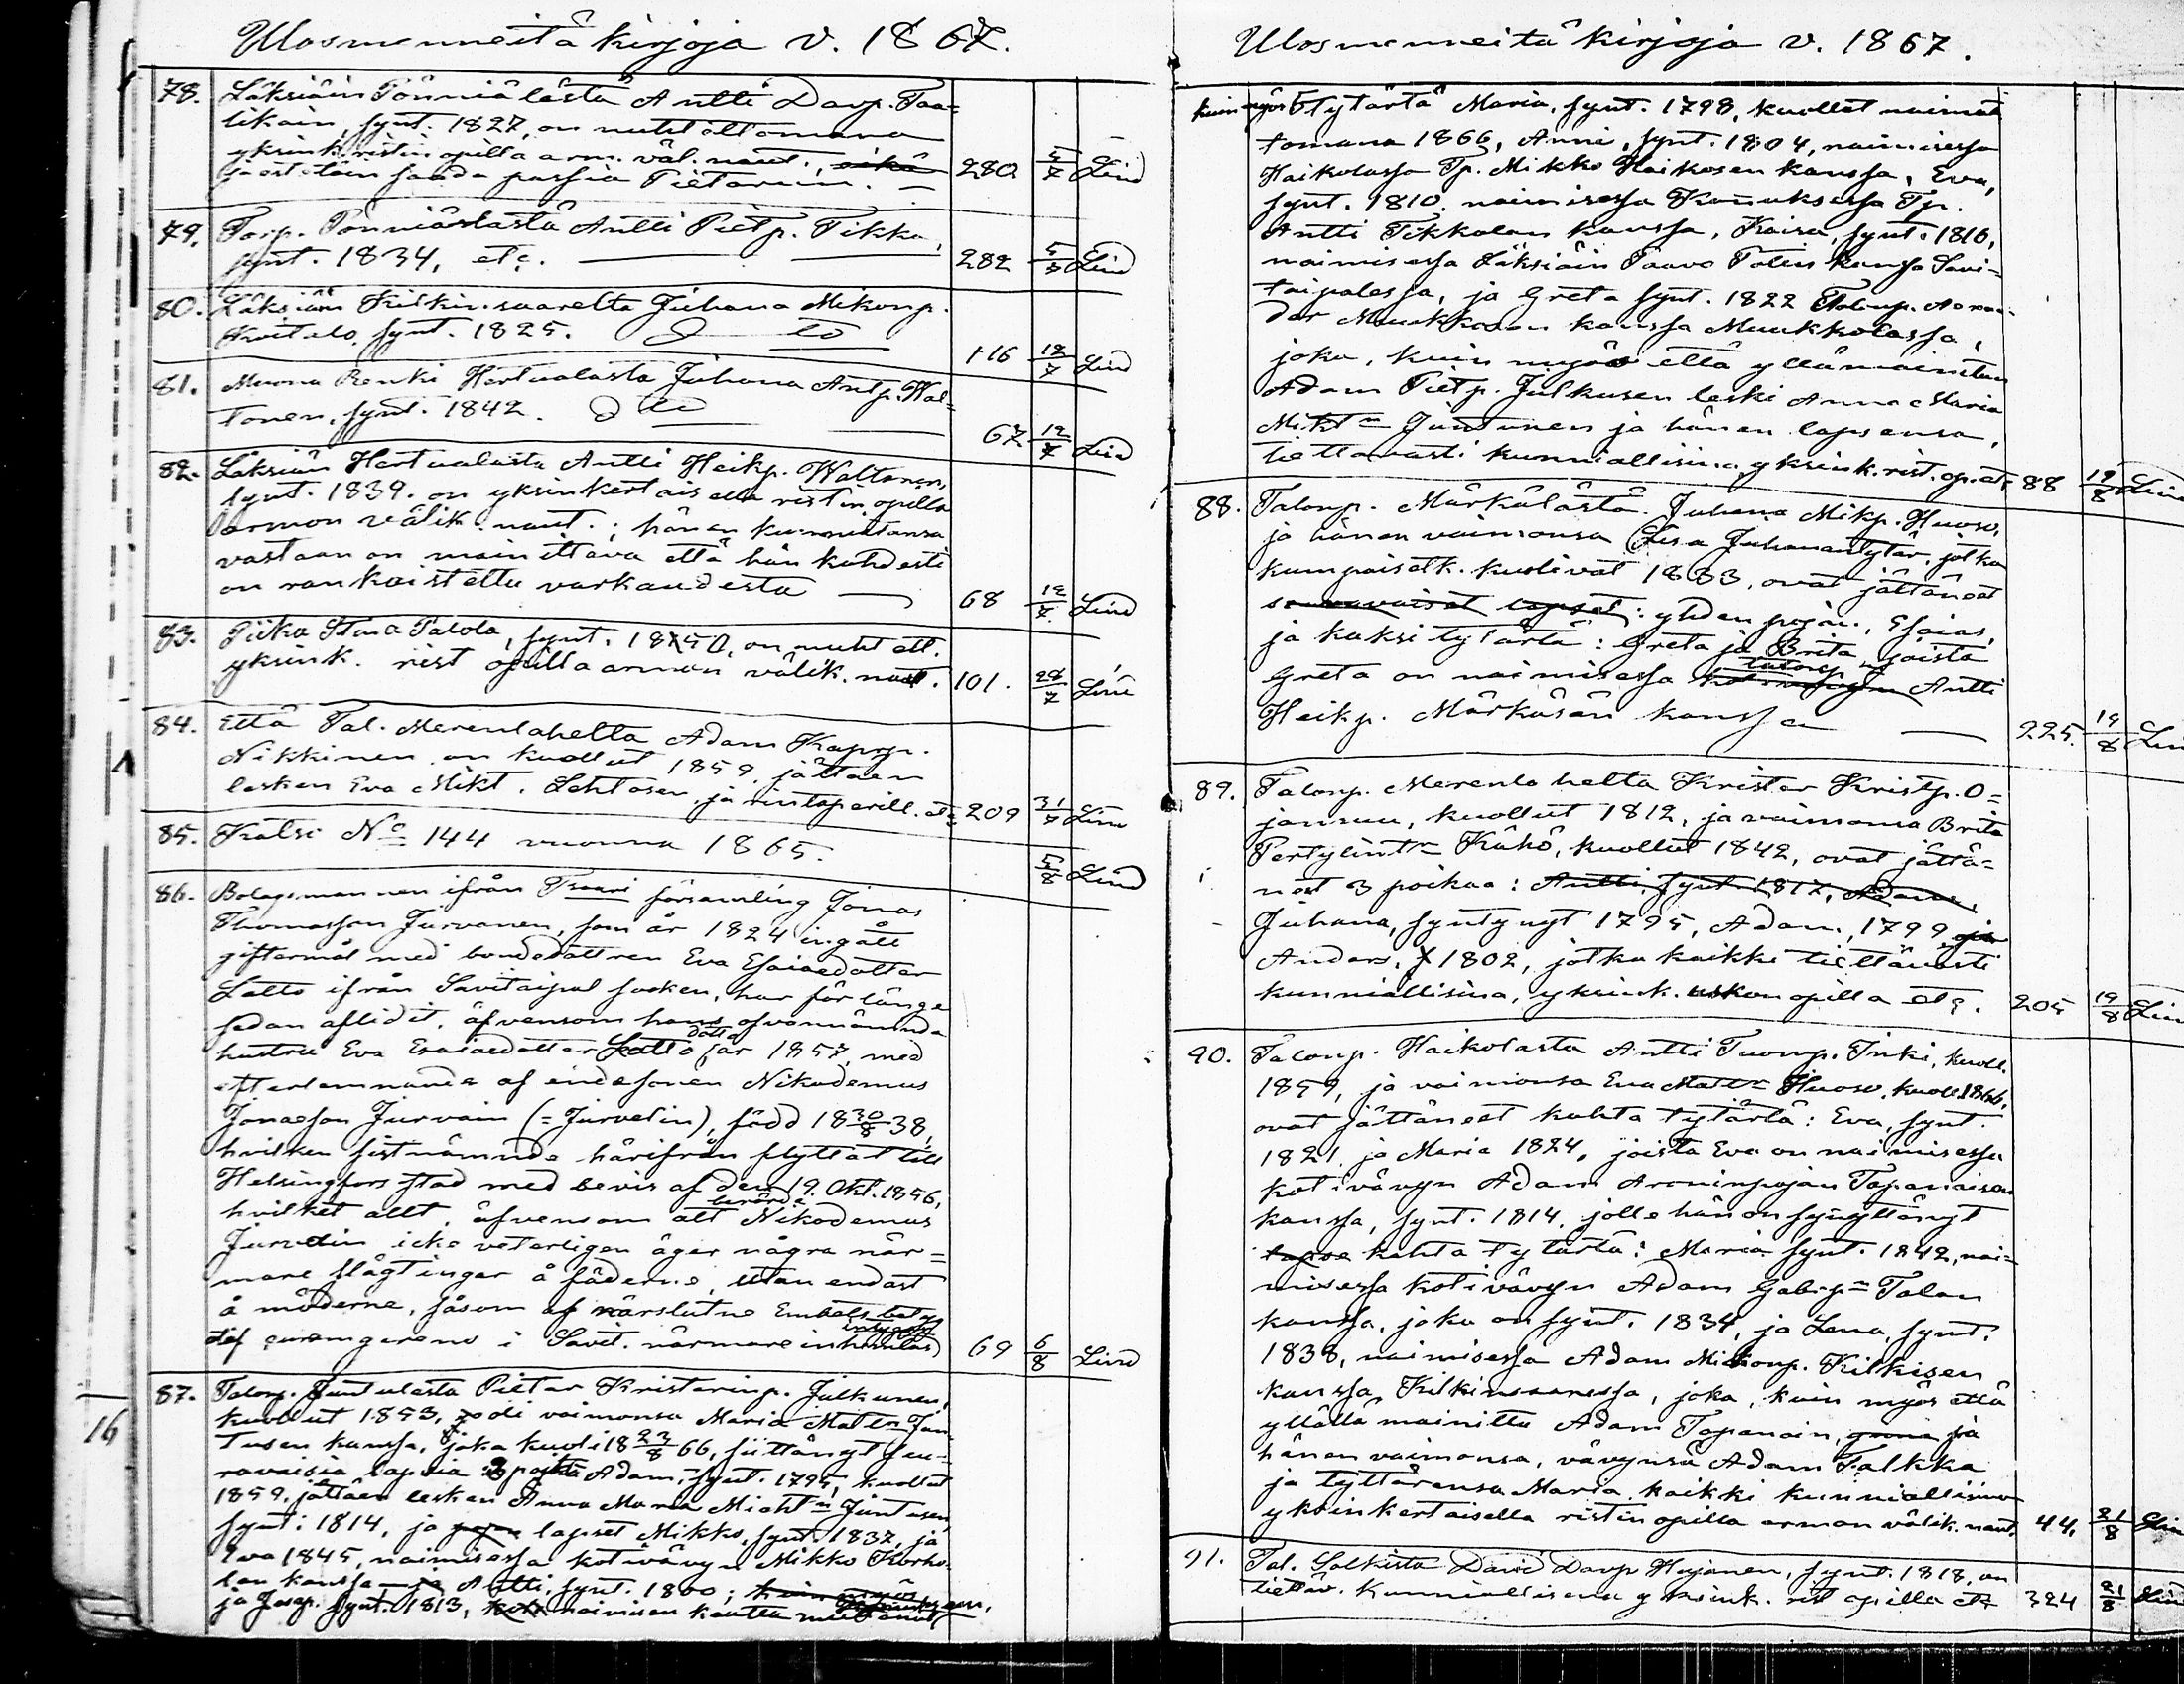 Ulosmenneitä kirjoja v. 1867.
78. Läksiäin Pönniälästä Antti Davp. Taa=
likain, synt. 1827, on nuhtettomana
yksink. ristin opilla arm. väl. naut.,
ja estetön saada passia Pietariin. — 280 5/7 Lind
79. Talp. Pönniälästä Antti Pietp. Tikka,
synt. 1834, etc. — 282 5/7 Lind
80. Läksiäin Kilkinsaarelta Juhana Mikonp.
Koitelo, synt. 1825. D:o 116 12/7 Lind
81. Muona Renki Hertualasta Juhana Antp. Wal=
tonen, synt. 1842. D:o — 67 12/7 Lind
82. Läksiäin Hertualasta Antti Heikp. Waltonen,
synt. 1839. on yksinkertaisella ristin opilla
armon välik. naut.; hänen kunniatansa
vastaan on mainittava että hän kahdesti
on rankaistettu varkaudesta — 68 12/7 Lind
83. Piika Stina Talola, synt. 1840, on nuht etl.
yksink. rist opilla armon välik. naut. 101. 28/7 Lind
84. Että Tal. Merenlahelta Adam Kaprp.
Nikkinen on kuollut 1859, jättäen
lesken Eva Mikt. Lehtosen, ja rintaperill. etc 209 31/7 Lind
85. Katso No 144 vuonna 1865. 5/8 Lind
86. Bolagsmannen ifrån församling Jonas
Thomasson Jurvanen, som år 1824 ingått
giftermål med bondedottren Eva Esaiaedotter
Latto ifrån Savitaipal socken, har för länge
sedan aflidit, äfvensom hans ofvannämnda
hustru Eva Esaiaedotter Latto år 1857, med
efterlemnande af endesonen Nikodemus
Jonaeson Jurvain (=Jurvelin), född 18 30/8 38,
hvilken sistnämnde härifrån flyttat till
Helsingfors stad med bevis af den 19. Okt. 1856,
hvilket allt, äfvensom att berörde Nikodemus
Jurvelin icke veterligen äger några när=
mare slägtingar å fäderne, utan endast
å möderne, såsom af närslutne Embets betyg
i Savit. närmare inhemtas 69 6/8 Lind
87. Talonp. Juntulasta Pietar Kristerinp. Julkunen,
kuollut 1853, vaimonsa Maria Matt:n Jun=
tusen kanssa, joka kuoli 18 23/8 66, siittänyt seu=
ravaisia lapsia: 3 poikaa Adam, synt. 1795, kuollut
1859, jättäen lesken Anna Maria Micht:n Juntusen
synt. 1814, ja lapset Mikko, synt. 1837, ja
Eva 1845, naimisessa kotivävyn Mikko Korho=
sen kanssa Antti, synt. 1800; kuin myös
ja Josep. synt. 1813, naimisen kautta muuttanut
16
Ulosmenneitä kirjoja v. 1867.
kuin myös 5 tytärtä Maria, synt. 1798, kuollut naimat=
tomana 1866, Anni, synt. 1804, naimisessa
Haikolassa Tp. Mikko Haikosen kanssa, Eva,
synt. 1810. naimisessa Tp.
Antti Tikkalan kanssa, Kaisa, synt. 1816,
naimisessa Läksiäin Paavo Talus kanssa Savi=
taipalessa, ja Greta synt. 1822 Talonp.
Muukkosen kanssa Muukkolassa,
joka, kuin myös että yllämainitun
Adam Pietp. Julkusen leski Anna Maria
Mikt:n Juntunen ja hänen lapsensa,
tiettävästi kunniallisina yksink. rist. op. etc 88 19/8 Lind
88. Talonp. Märkälästä Juhana Mikp. Huoso,
ja hänen vaimonsa Lisa Juhanantytär, jotka
kumpaisetk. kuolivat 1833, ovat jättäneet
seuraavaiset lapset: yhden pojan, Esaias,
ja kaksi tytärtä: Greta ja Brita, joista
Greta on naimisessa talonp. Antti
Heikp. Märkäsän kanssa — 225. 19/8 Lin
89. Talonp. Merenlahelta Krister Kristp. O=
jansuu, kuollut 1812, ja vaimonsa Brita
Pertylint:r Kähö, kuollut 1842, ovat jättä=
neet 3 poikaa: Antti, synt. 1817, Adam,
Juhana, syntynyt 1795, Adam, 1799, ja
Anders, 1802, jotka kaikki tiettävästi
kunniallisina, yksink. uskon opilla etc. 205 19/8 Lin
90. Talonp. Haikolasta Antti Tuomp. Inki, kuoll.
1859, ja vaimonsa Eva Matt:r Huoso, kuoll 1866,
ovat jättäneet kahta tytärtä: Eva, synt.
1821, ja Maria 1824, joista Eva on naimisessa
kotivävyn Adam Aroninpojan Tapanaisen
kanssa, synt. 1814, jolle hän on synnyttänyt
lapse kahta tytärtä: Maria synt. 1842, nai=
misessa kotivävyn Adam Gabrp:n Talan
kanssa, joka on synt. 1834, ja Lena, synt.
1838, naimisessa Adam Mikonp. Kilkisen
kanssa Kilkinsaaressa, joka, kuin myös että
yllällä mainittu Adam Tapanain, ja
hänen vaimonsa, vävynsä Adam Talkka
ja tyttärensä Maria, kaikki kunniallisina
yksinkertaisella ristin opilla armon välik. naut. 44. 21/8 Lin
91. Tal. Solkista David Davp Hujanen, synt. 1818, on
tiettäv. kunniallisena yksink. rist opilla etc 324 21/8 Lin